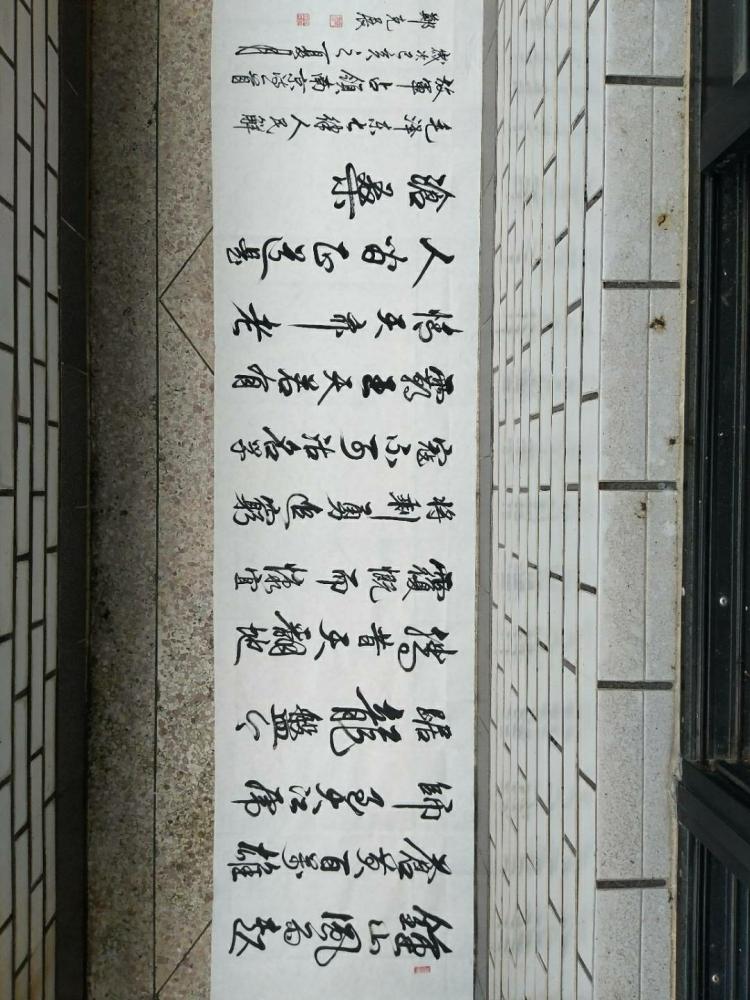 鍾山風雨起
蒼黄百萬雄
師過大江虎
踞龍盤今
勝昔天翻地
覆慨而慷宜
將剩勇追窮
寇不可沽名學
霸王天若有
情天亦老
人間正道是
滄桑
毛澤東七律人民解
放軍占領南京詩一首
歲次己亥之夏月
鄭克晨